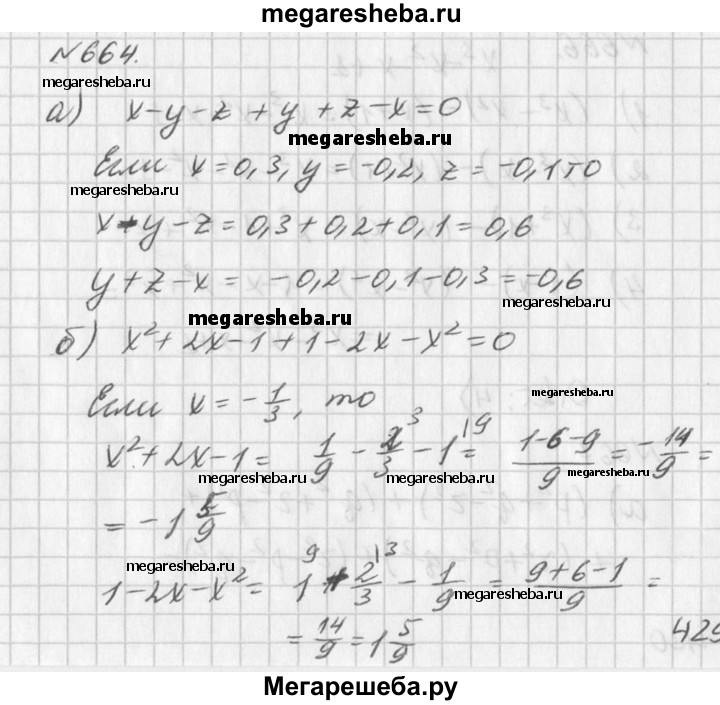 megaresheba.com
№664.
megaresheba.com
а) x-y-z+y+z-x=0
megaresheba.com
Если x=0,3, y=-0,2, z=-0,1 то
megaresheba.com
x-y-z=0,3+0,2+0,1=0,6
y+z-x= -0,2-0,1-0,3=-0,6
megaresheba.com
megaresheba.com
б) x²+2x-1+1-2x-x²=0
Если x=-1/3, то
megaresheba.com
x²+2x-1= 1/9 - 2/3 \3 -1 \9 = (1-6-9)/9 = -14/9 =
megaresheba.com
= -1 5/9
megaresheba.com
1-2x-x²= 1 9 + 2/3 \3 - 1/9 = (9+6-1)/9 =
megaresheba.com
= 14/9 = 1 5/9
429
megaresheba.com
Мегарешеба.ру